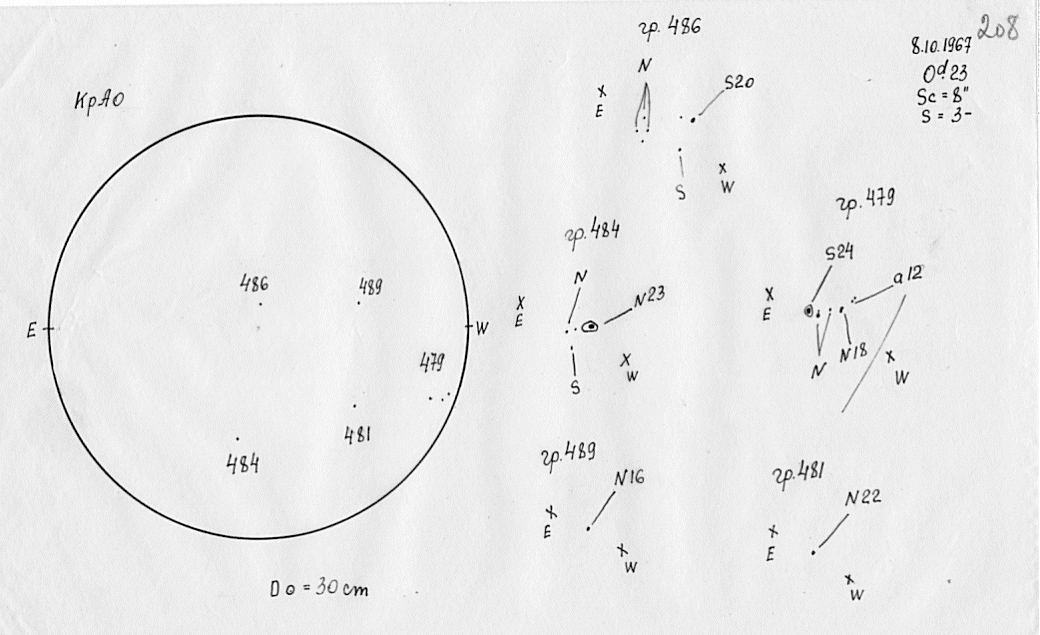 208
8.10.1967
Od 23
Sc = 8"
S = 3-
КрАО
486
489
E
W
479
481
484
D⊙ = 30 cm
гр. 486
N
x
E
S20
S
x
W
гр. 484
N
x
E
N23
S
x
W
гр. 479
S24
a12
x
E
N
N18
x
W
гр. 489
N16
x
E
x
W
гр. 481
N22
x
E
x
W